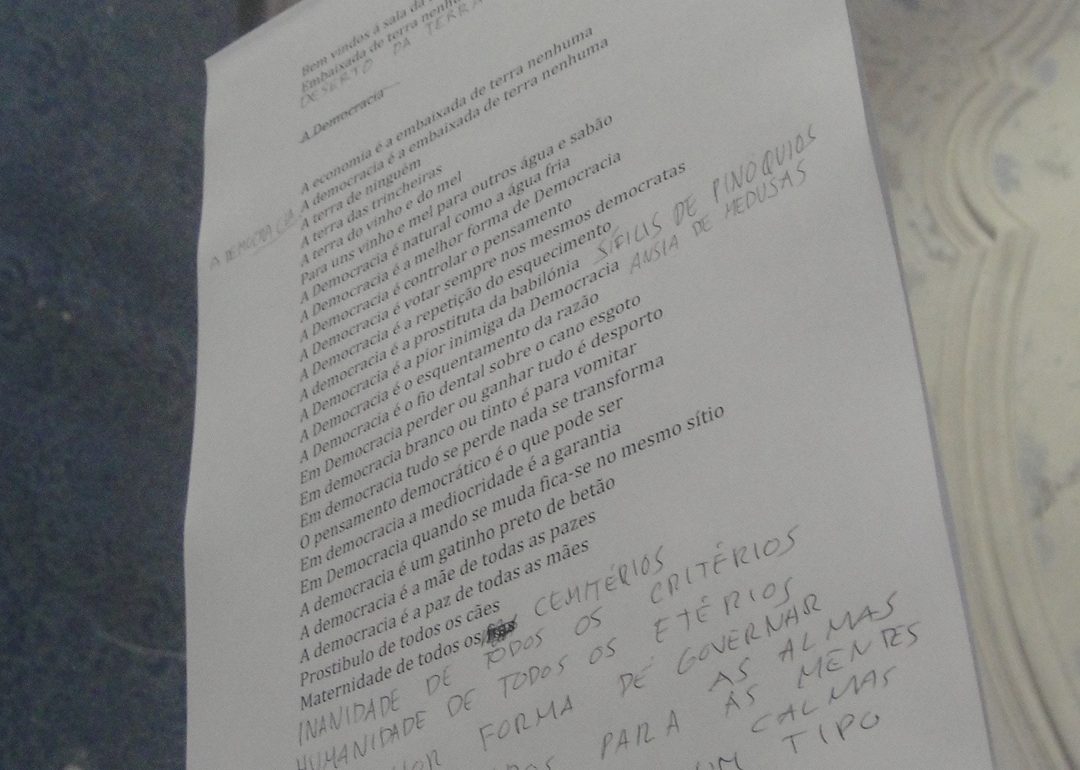 Bem vindos á sala da
Embaixada de terra nenhuma
DESERTO DA TERRA
A Democracia
A economia é a embaixada de terra nenhuma
A democracia é a embaixada de terra nenhuma
A terra de ninguém
A DEMOCRACIA A terra das trincheiras
A terra do vinho e do mel
Para uns vinho e mel para outros água e sabão
A Democracia é natural como a água fria
A Democracia é a melhor forma de Democracia
A Democracia é controlar o pensamento
A Democracia é votar sempre nos mesmos democratas
A Democracia é a repetição do esquecimento
A democracia é a prostituta da babilónia SÍFILIS DE PINOQUIOS
A Democracia é a pior inimiga da Democracia ANSIA DE MEDUSAS
A Democracia é o esquentamento da razão
A Democracia é o fio dental sobre o cano esgoto
Em Democracia perder ou ganhar tudo é desporto
Em democracia branco ou tinto é para vomitar
Em democracia tudo se perde nada se transforma
O pensamento democrático é o que pode ser
Em democracia a mediocridade é a garantia
Em Democracia quando se muda fica-se no mesmo sítio
A democracia é um gatinho preto de betão
A democracia é a mãe de todas as pazes
A democracia é a paz de todas as mães
Prostibulo de todos os cães
Maternidade de todos os CEMITÉRIOS
INANIDADE DE TODOS OS CRITÉRIOS
HUMANIDADE DE TODOS OS ETÉRIOS
FORMA DE GOVERNAR
PARA AS ALMAS
AS MENTES
CALMAS
UM TIPO